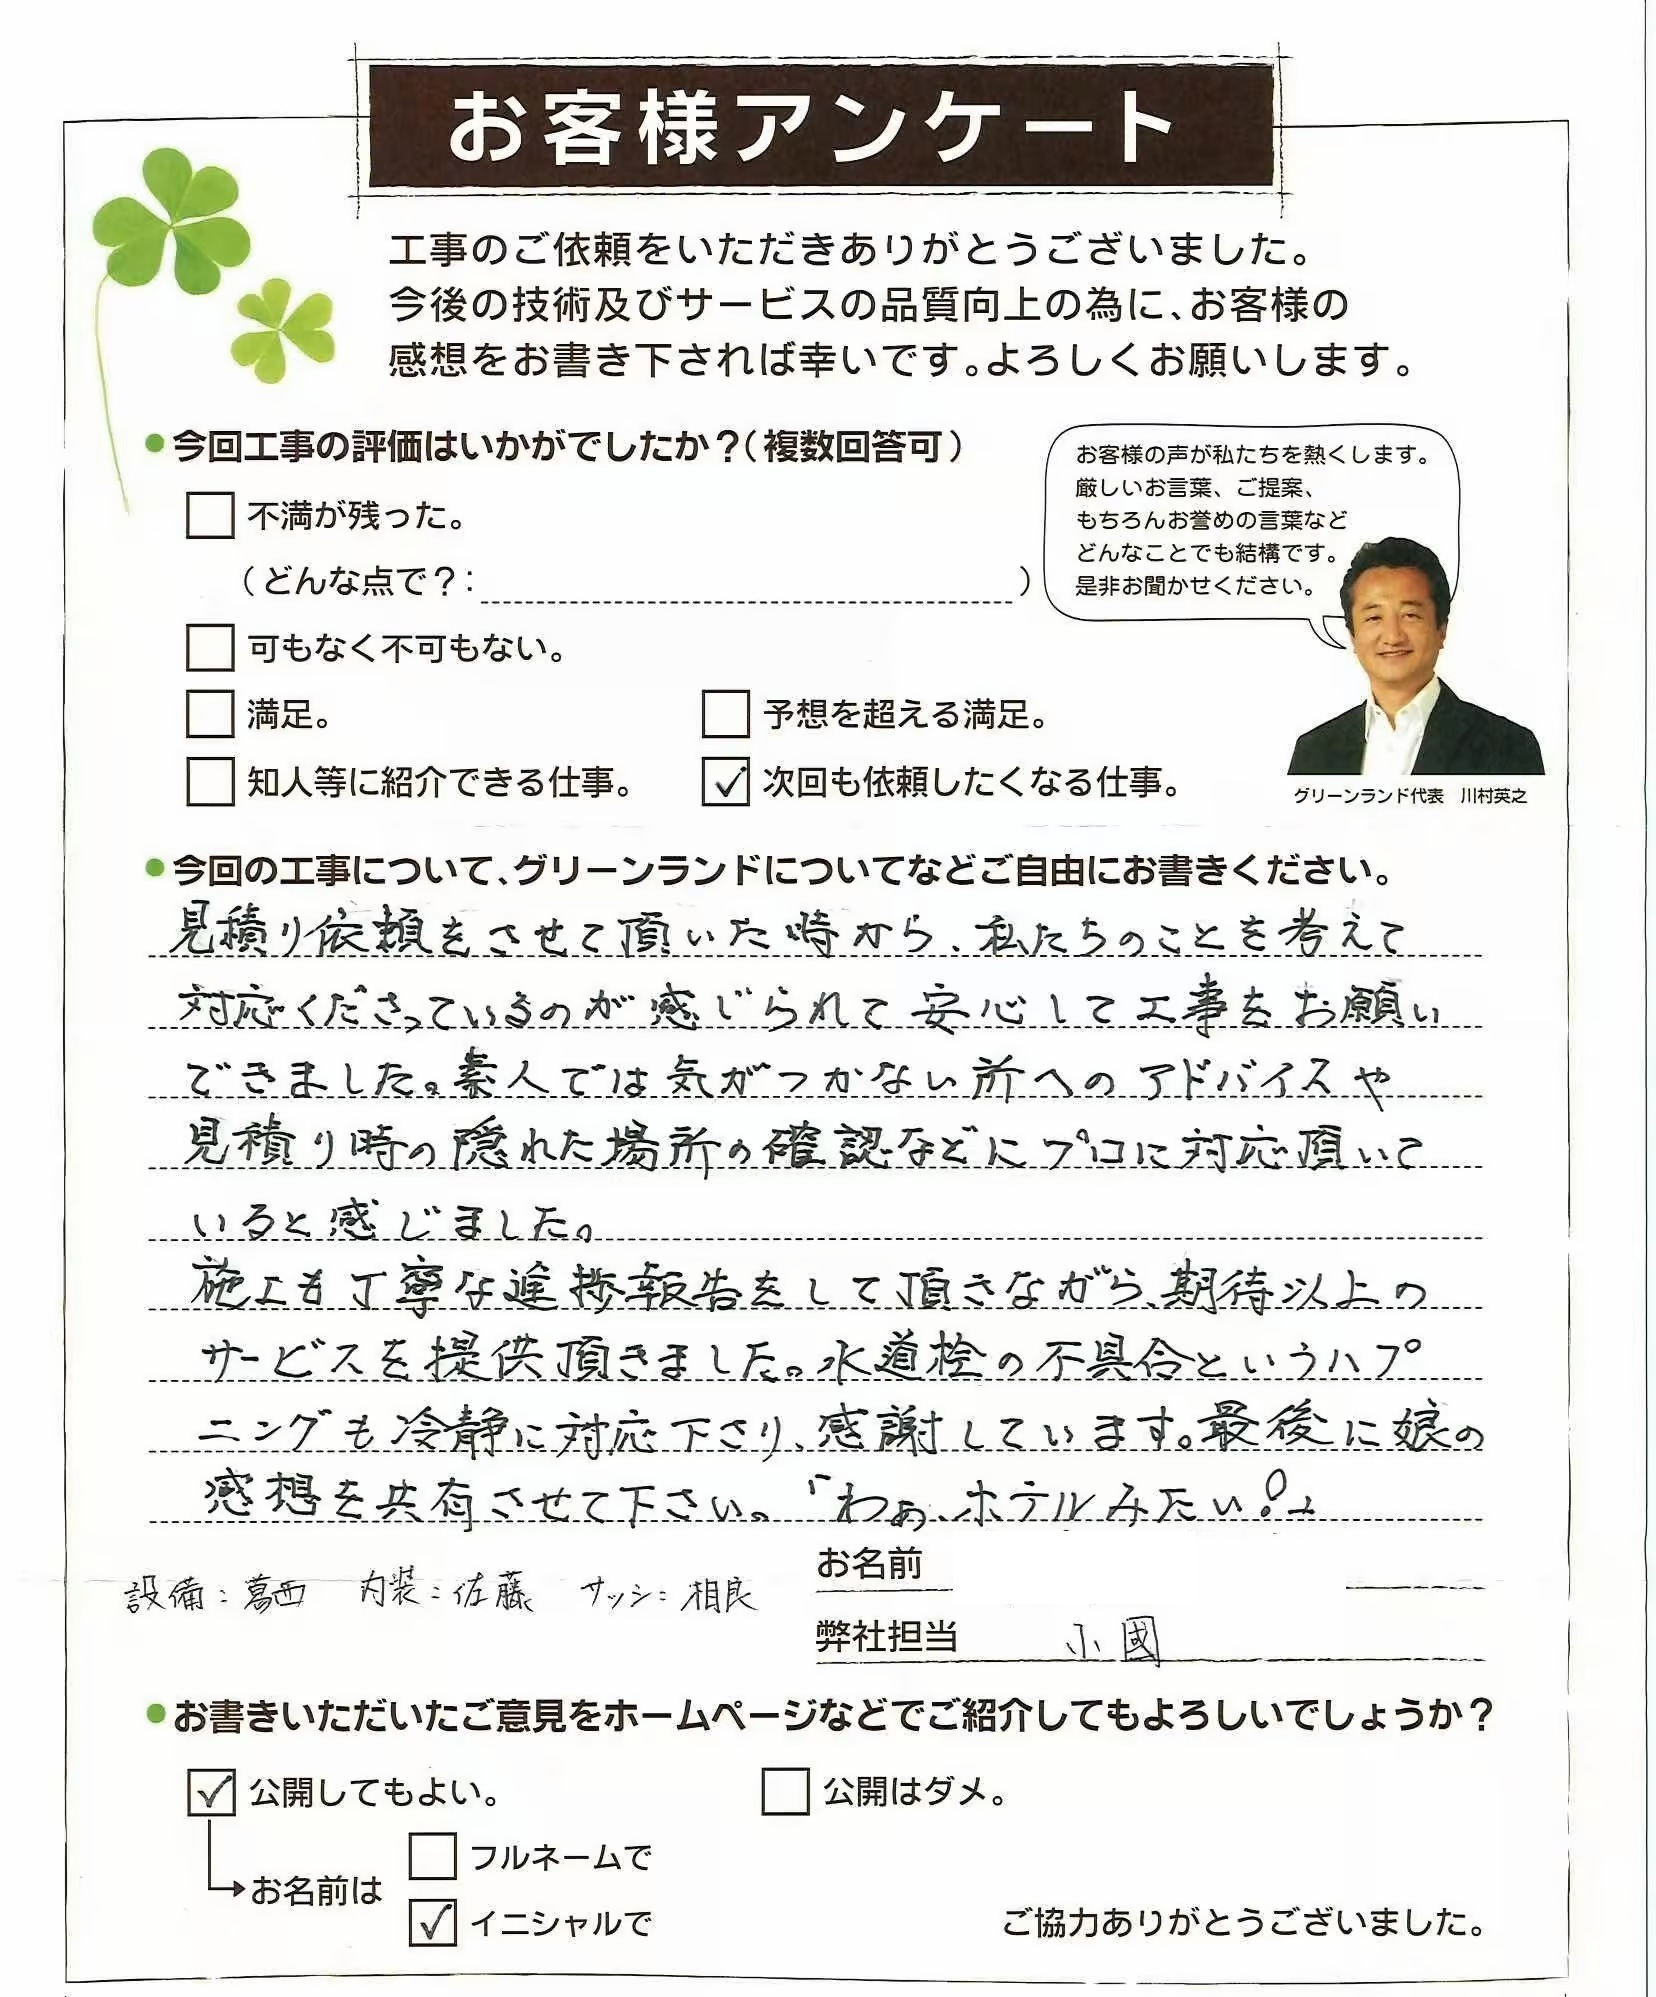 お客様アンケート
工事のご依頼をいただきありがとうございました。
今後の技術及びサービスの品質向上の為に、お客様の
感想をお書き下されば幸いです。よろしくお願いします。
●今回工事の評価はいかがでしたか？（複数回答可）
お客様の声が私たちを熱くします。
厳しいお言葉、ご提案、
もちろんお誉めの言葉など
どんなことでも結構です。
是非お聞かせください。
グリーンランド代表　川村英之
□ 不満が残った。
（どんな点で？：　　　）
□ 可もなく不可もない。
□ 満足。　□ 予想を超える満足。
□ 知人等に紹介できる仕事。　☑ 次回も依頼したくなる仕事。
●今回の工事について、グリーンランドについてなどご自由にお書きください。
見積り依頼をさせて頂いた時から、私たちのことを考えて
対応くださっているのが感じられて安心して工事をお願い
できました。素人では気がつかない所へのアドバイスや
見積り時の隠れた場所の確認などにプロに対応頂いて
いると感じました。
施工も丁寧な進捗報告をして頂きながら、期待以上の
サービスを提供頂きました。水道栓の不具合というハプ
ニングも冷静に対応下さり、感謝しています。最後に娘の
感想を共有させて下さい。「わぁ、ホテルみたい！」
お名前
設備：葛西　内装：佐藤　サッシ：相良
弊社担当　小國
●お書きいただいたご意見をホームページなどでご紹介してもよろしいでしょうか？
☑ 公開してもよい。　□ 公開はダメ。
□ フルネームで
お名前は
☑ イニシャルで
ご協力ありがとうございました。